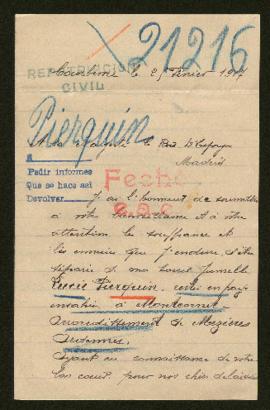 21216
REPATRIACION
CIVIL
le 25 Février 1917
Pierquin
A sa Majesté le Roi d'Espagne
Madrid
A
Pedir informes
Que se hace así
Devolver
Fecho
J'ai l'honneur de soumettre
à votre bienveillance et à votre
attention la souffrance et
les ennuis que j'endure, d'être
séparée de ma sœur jumelle
Lucie Pierquin, restée en pays
envahie à Montcornet
Arrondissement de Mézières
Ardennes.
Ayant eu connaissance de votre
bon cœur, pour nos chers